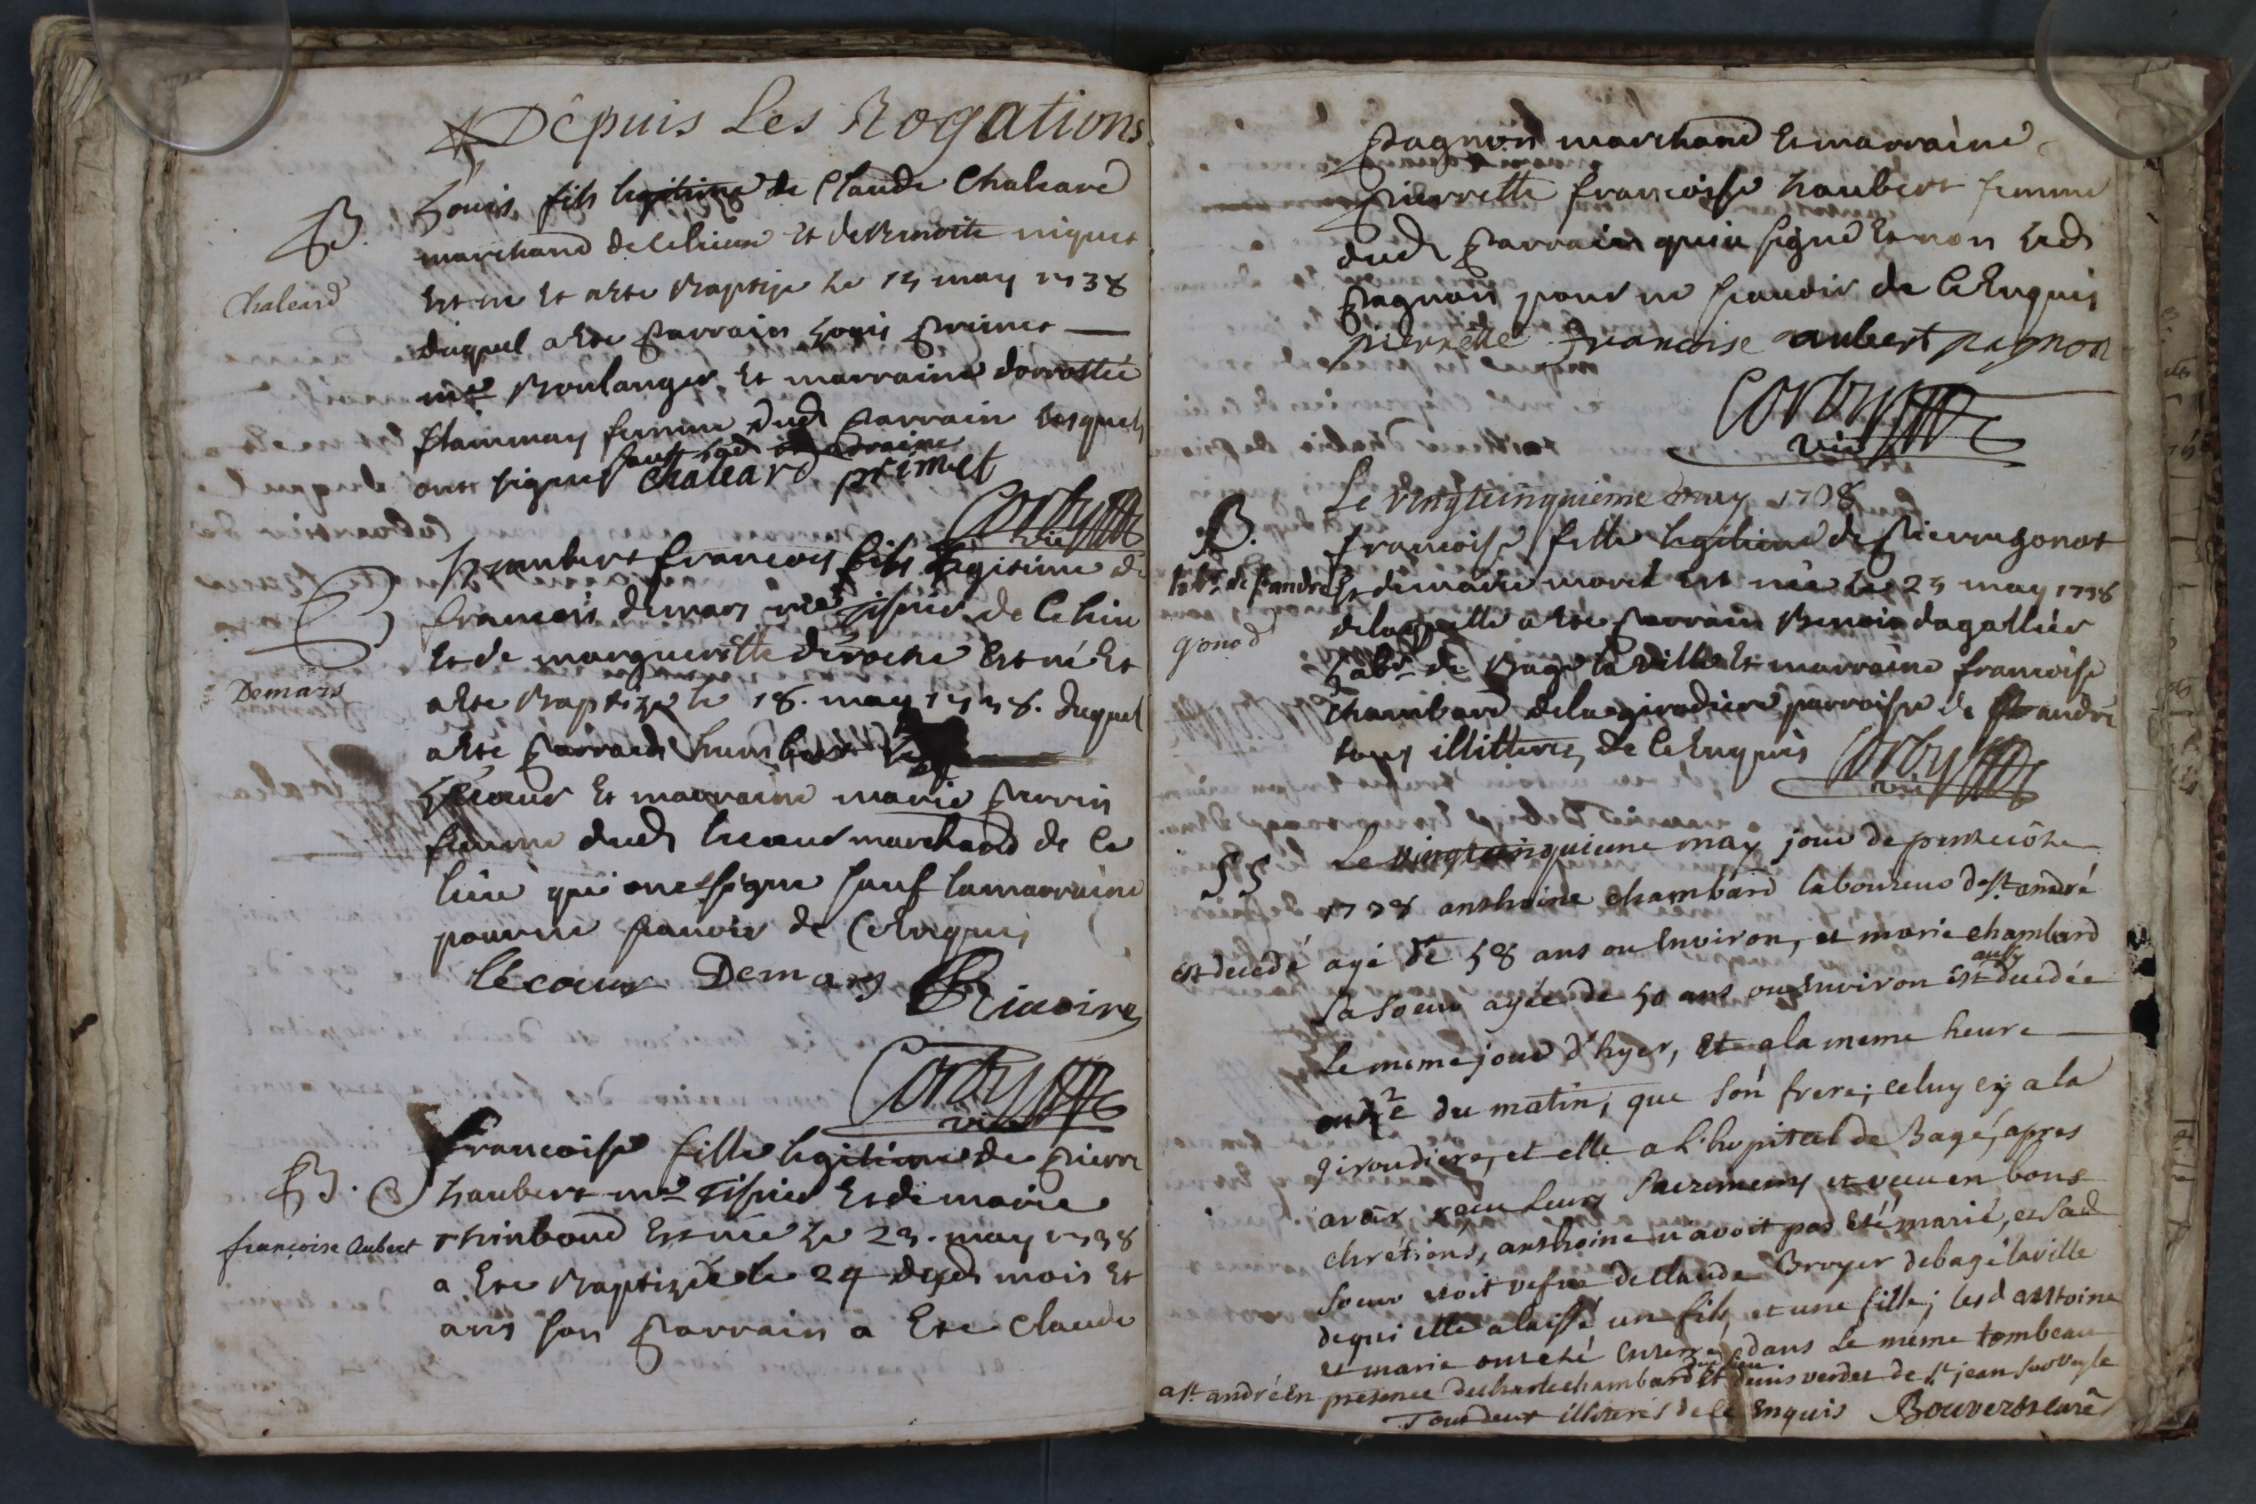 Dépuis Les Rogations
B.
Chaleard
Louis fils legitime de Claude Chaleard
marchand de ce lieux et de Benoite niquet
est né et a ete Baptize le 15 may 1738
duquel a ete parrain Louis primet
me Boulanger, et marraine dorrottée
femme dud parrain lesquels
ont signés sauf lad marraine
chaleard primet
Corby
vic
B
Demars
humbert francois fils legitime de
francois demars me tissier de ce lieu
et de marguerittte deroche est né et
a ete Baptizé le 18. may 1738. duquel
a ete parrain humbert
Lecœur et marraine marie perrin
femme dud lecœur marchand de ce
lieu qui ont signe sauf la marraine
pour ne scavoir de ce enquis
lecœur Demars Rivoire
Corby
vic
B.
françoise Aubert
francoise fille legitime de pierre
haubert me Tissier et de marie
thiboud est née le 23. may 1738
a ete Baptizée le 24 desds mois et
ans son parrain a ete Claude
pagnon marchand et marraine
pierrette francoise haubert femme
dud parrain qui a signé et non led
pagnon pour ne scavoir de ce enquis
pierrette francoise aubert pagnon
Corby
vic
Le vingtcinquième may 1738
B.
habt. de st andré
gonod
francoise fille legitime de pierre gonot
et de marie morel est née le 25 may 1738
de laquelle a ete parrain Benoit dagallier
habt. de Bagé la ville et marraine francoise
chambard de la girodiere parroisse de st andré
tous illitterés de ce enquis
Corby
vic
SS
Le vingtcinquieme may jour de pentecôte
1738 anthoine chambard laboureur de st. andré
est decedé agé de 58 ans ou environ, et marie chambard
sa soeur agée de 50 ans ou environ est aussy decedée
le meme jour d'hyer, et a la meme heure
onze du matin, que son frere; celuy cy a la
giroudiere, et elle a l'hopital de Bagé, apres
avoir reçu leurs sacremens et vecu en bons
chrétiens, anthoine n'avoit pas eté marié, et sad
soeur etoit vefve de claude Broyer de bagé la ville
de qui elle a laissé un fils et une fille; lesd anttoine
et marie ont eté enterrés dans le même tombeau
a st. andré en presence de charle chambard dud lieu et denis verdet de st jean sur veyle
Tous deux illiterés de ce enquis Bouveret curé